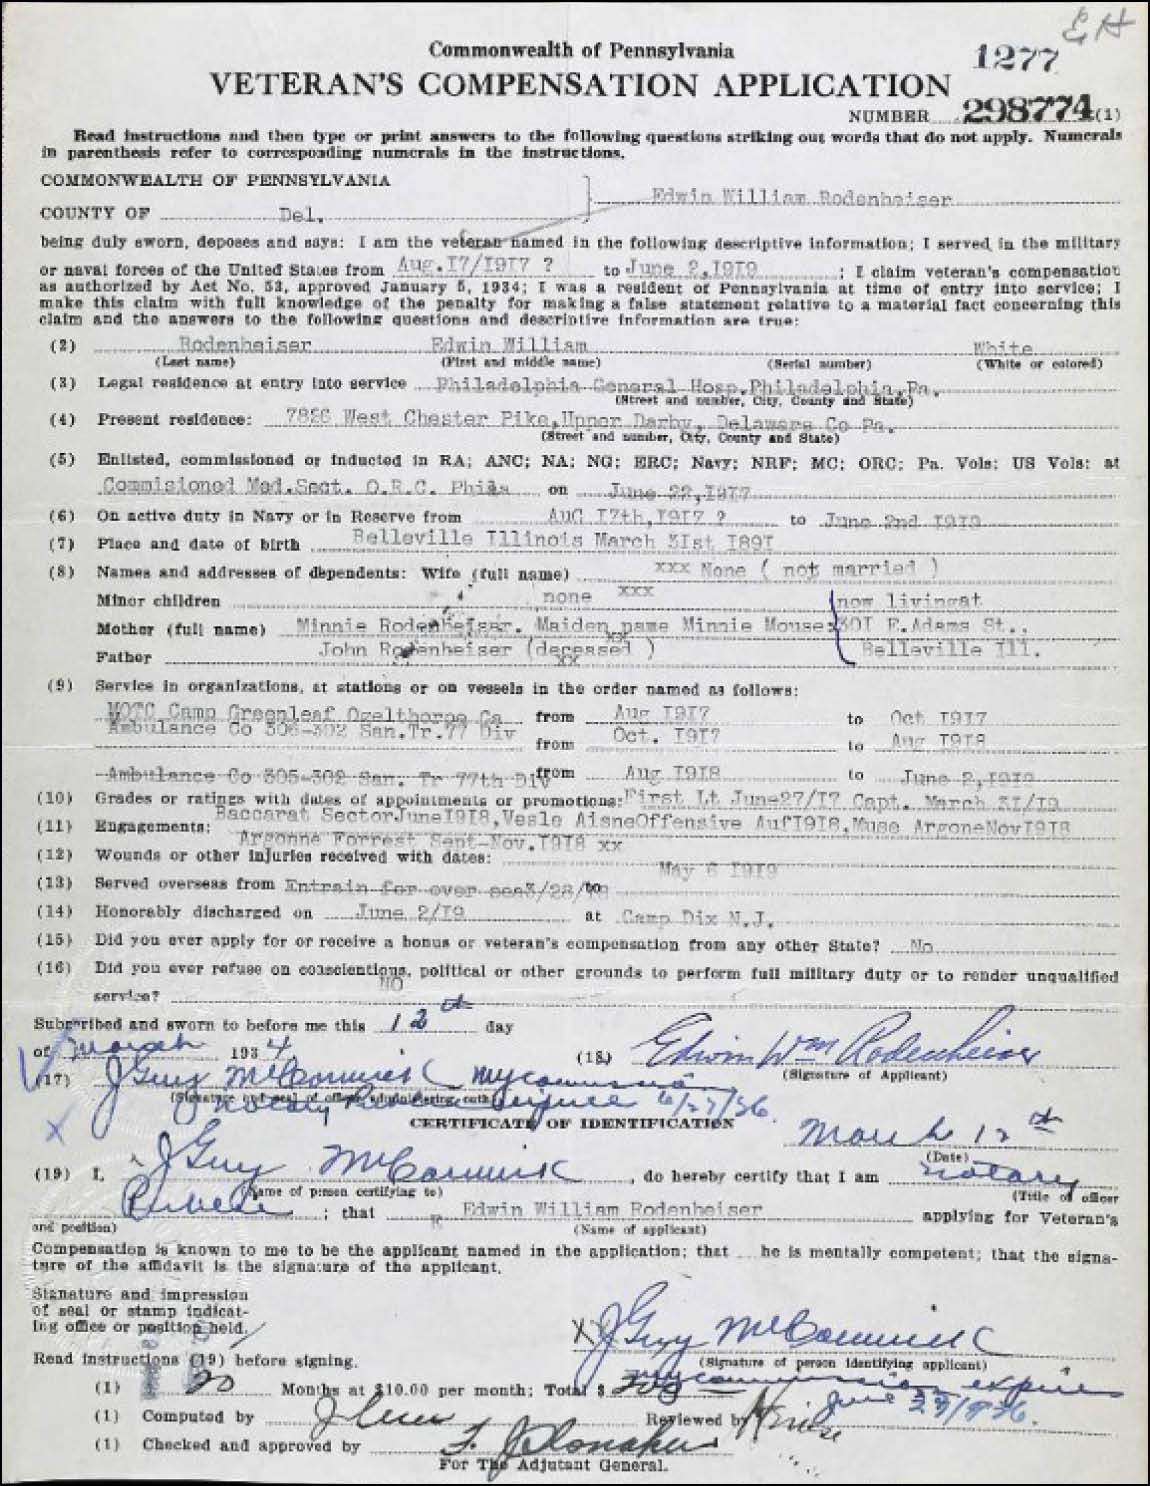 EH
Commonwealth of Pennsylvania
1277
VETERAN'S COMPENSATION APPLICATION
NUMBER 298774 (1)
Read instructions and then type or print answers to the following questions striking out words that do not apply. Numerals
in parenthesis refer to corresponding numerals in the instructions.
COMMONWEALTH OF PENNSYLVANIA
Edwin William Rodenheiser
COUNTY OF Del.
being duly sworn, deposes and says: I am the veteran named in the following descriptive information; I served in the military
or naval forces of the United States from Aug.I7/I9I7 ? to June 2,I9I9 ; I claim veteran's compensation
as authorized by Act No. 53, approved January 5, 1934; I was a resident of Pennsylvania at time of entry into service; I
make this claim with full knowledge of the penalty for making a false statement relative to a material fact concerning this
claim and the answers to the following questions and descriptive information are true:
(2) Rodenheiser Edwin William White
(Last name) (First and middle name) (Serial number) (White or colored)
(3) Legal residence at entry into service Philadelphia General Hosp.Philadelphia,Pa.
(Street and number, City, County and State)
(4) Present residence: 7826 West Chester Pike,Upper Darby, Delaware Co Pa.
(Street and number, City, County and State)
(5) Enlisted, commissioned or inducted in RA; ANC; NA; NG; ERC; Navy; NRF; MC; ORC; Pa. Vols; US Vols: at
Commisioned Med.Sect. O.R.C. Phila on June 22,I9I7
(6) On active duty in Navy or in Reserve from AuG I7th,I9I7 ? to June 2nd I9I9
(7) Place and date of birth Belleville Illinois March 3Ist I89I
(8) Names and addresses of dependents: Wife (full name) xxx None ( not married )
Minor children none xxx now livingat
Mother (full name) Minnie Rodenheiser. Maiden name Minnie Mouse: 30I E.Adams St.,
Father John Rodenheiser (deceased ) Belleville Ill.
(9) Service in organizations, at stations or on vessels in the order named as follows:
MOTC Camp Greenleaf Ogelthorpe Ga from Aug I9I7 to Oct I9I7
Ambulance Co 306-302 San.Tr.77 Div from Oct. I9I7 to Aug I9I8
Ambulance Co 305-302 San. Tr 77th Div from Aug I9I8 to June 2,I9I9
(10) Grades or ratings with dates of appointments or promotions: First Lt June27/I7 Capt. March 3I/I9
(11) Engagements: Baccarat SectorJuneI9I8,Vesle AisneOffensive AufI9I8,Muse ArgoneNovI9I8
Argonne Forrest Sept-Nov.I9I8 xx
(12) Wounds or other injuries received with dates:
May 6 I9I9
(13) Served overseas from Entrain for over sea3/28/I8 to
(14) Honorably discharged on June 2/I9 at Camp Dix N.J.
(15) Did you ever apply for or receive a bonus or veteran's compensation from any other State? No
(16) Did you ever refuse on conscientious, political or other grounds to perform full military duty or to render unqualified
service? NO
Subscribed and sworn to before me this 12th day
of March 1934 (18) Edwin Wm Rodenheiser
(Signature of Applicant)
(17) J Guy McCormick my commission
(Signature and seal of officer administering oath)
Notary Public expires 6/27/36.
CERTIFICATE OF IDENTIFICATION
March 12th
(Date)
(19) I, J Guy McCormick, do hereby certify that I am notary
(Name of person certifying to) (Title of officer
Public ; that Edwin William Rodenheiser applying for Veteran's
and position) (Name of applicant)
Compensation is known to me to be the applicant named in the application; that he is mentally competent; that the signa-
ture of the affidavit is the signature of the applicant.
Signature and impression
of seal or stamp indicat-
ing office or position held.
X J Guy McCormick
(Signature of person identifying applicant)
Read instructions (19) before signing.
my commission expires
June 27/1936.
(1) 20 Months at $10.00 per month; Total $ 200
(1) Computed by Reviewed by
(1) Checked and approved by
For The Adjutant General.